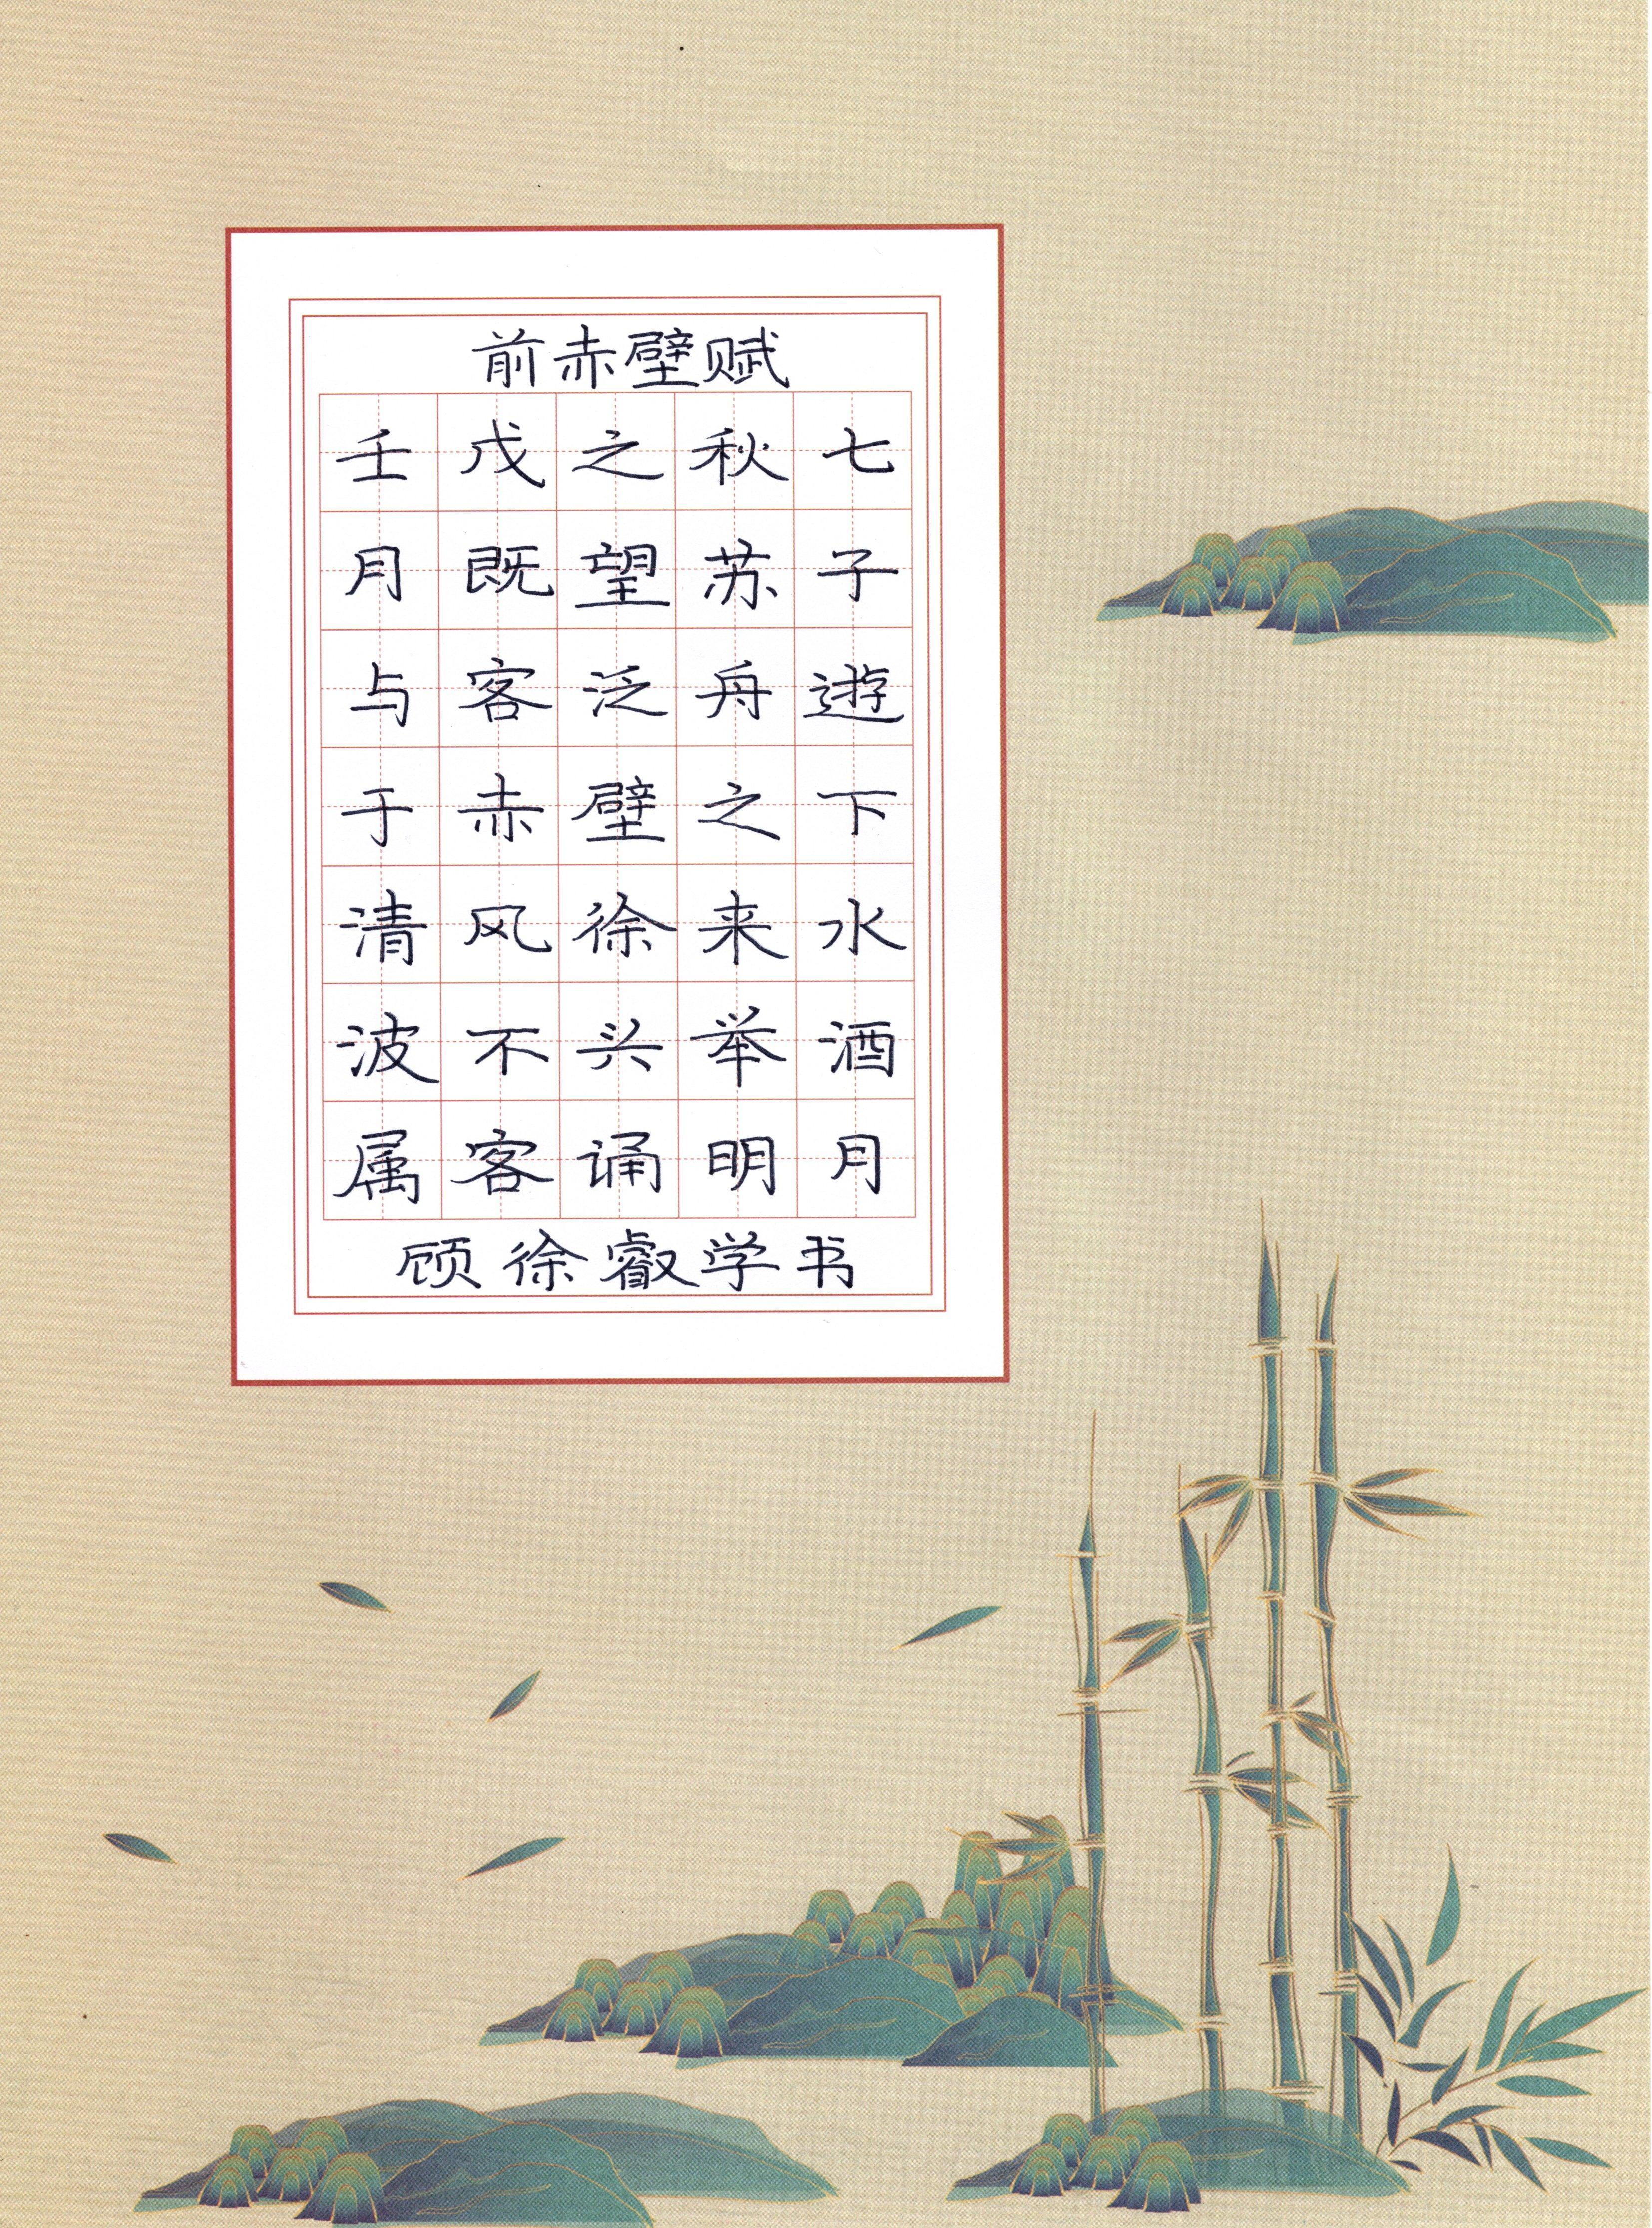 前赤壁赋
壬戊之秋七
月既望苏子
与客泛舟遊
于赤壁之下
清风徐来水
波不兴举酒
属客诵明月
顾徐睿学书